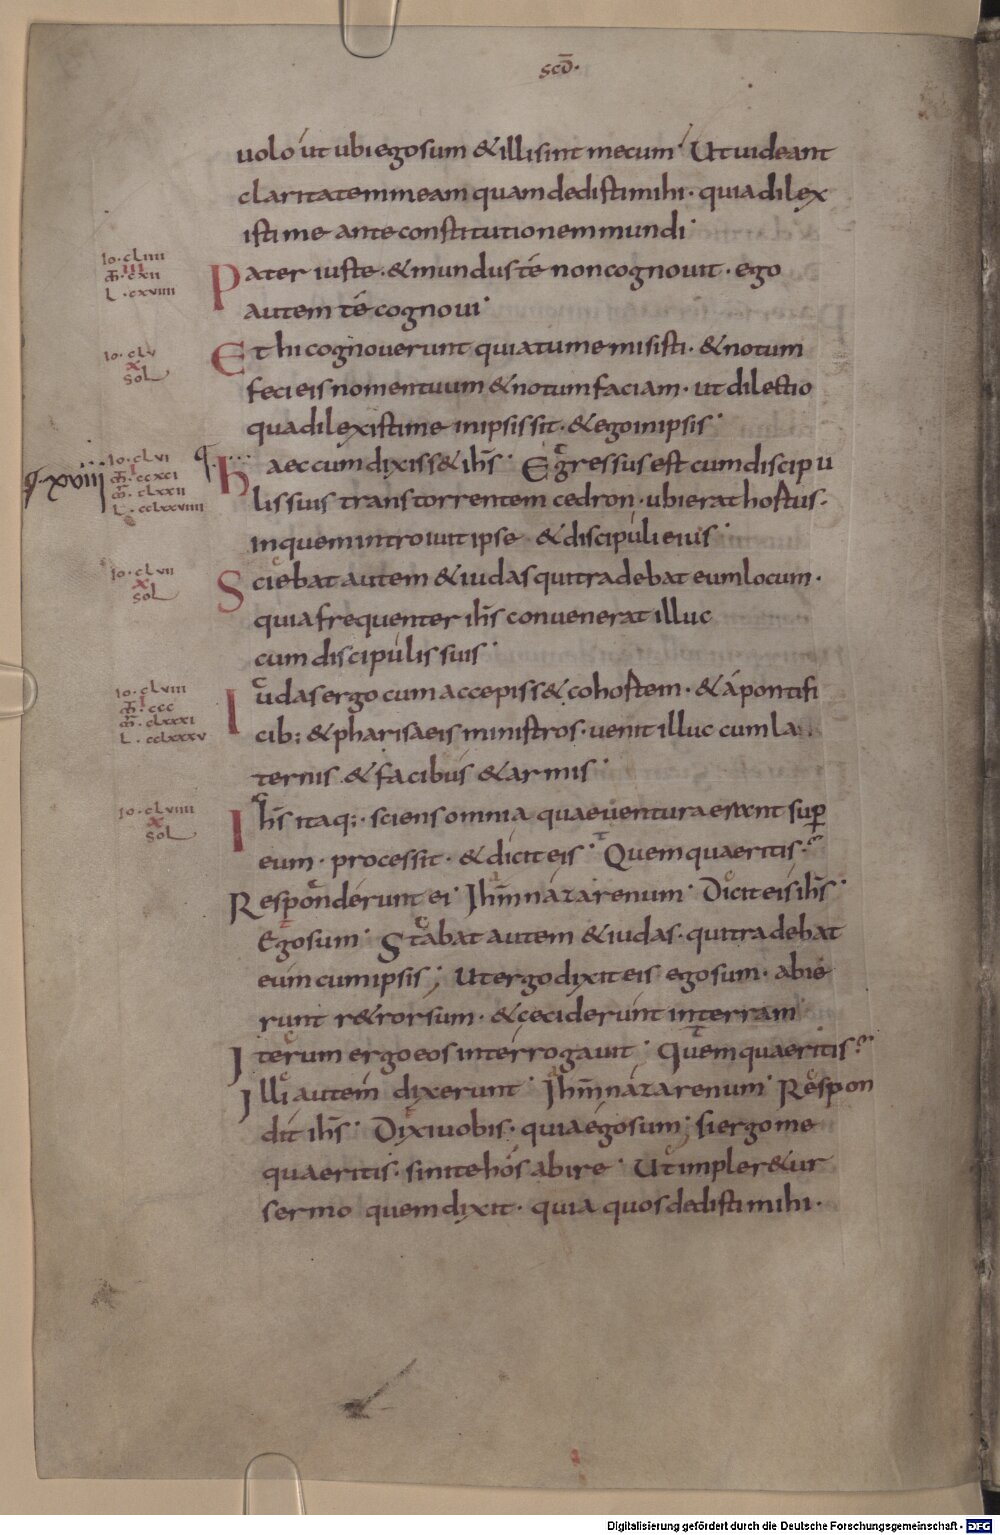 scd̄·
uolo ut ubi ego sum & illi sint mecum· Ut uideant
claritatem meam quam dedisti mihi· quia dilex
isti me ante constitutionem mundi·
Io·cLIIII
III
m̄·cxII
L·cxVIIII
Pater iuste· & mundus té non cognouit· ego
autem té cognoui·
Io·cLV
x
soL
Et hi cognouerunt quia tu me misisti· & notum
feci eis nomen tuum & notum faciam· ut dilectio
qua dilexisti me in ipsis sit· & ego in ipsis·
xviii
Io·cLVI
I
m̄·ccxcI
m̄·cLxxII
L·ccLxxVIIII
haec cum dixiss& ihs̄· Egressus est cum discipu
lis suis trans torrentem cedron· ubi erat hortus·
in quem introiuit ipse & discipuli eius·
Io·cLVII
x
soL
Sciebat autem & iudas qui tradebat eum locum·
quia frequenter ihs̄ conuenerat illuc
cum discipulis suis·
Io·cLVIII
I
m̄·ccc
m̄·cLxxxI
L·ccLxxxV
Iudas ergo cum accepiss& cohortem· & á pontifi
cib; & pharisaeis ministros· uenit illuc cum la
ternis & facibus & armis·
Io·cLVIIII
x
soL
Ihs̄ itaq;· sciens omnia quae uentura erant sup̄
eum· processit· & dicit eis· Quem quaeritis·
Responderunt ei· Ihm̄ nazarenum· Dicit eis ihs̄·
Ego sum· Stabat autem & iudas· qui tradebat
eum cum ipsis; Ut ergo dixit eis ego sum· abie
runt r&rorsum· & ceciderunt in terram
Iterum ergo eos interrogauit· Quem quaeritis·
Illi autem dixerunt· Ihm̄ nazarenum· Respon
dit ihs̄· Dixi uobis· quia ego sum; si ergo me
quaeritis· sinite hos abire· Ut impler&ur
sermo quem dixit· quia quos dedisti mihi·
Digitalisierung gefördert durch die Deutsche Forschungsgemeinschaft - DFG